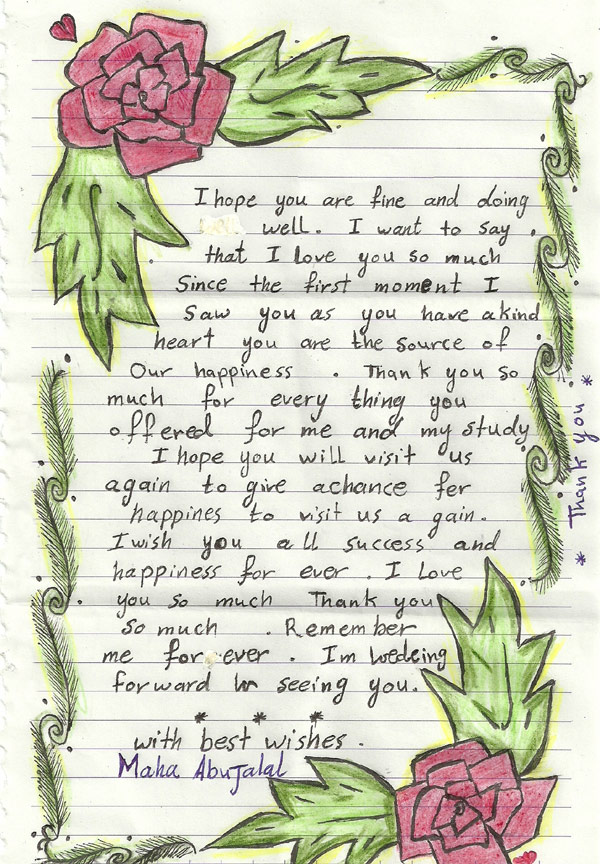 I hope you are fine and doing
well. I want to say .
that I love you so much
Since the first moment I
Saw you as you have akind
heart you are the source of
Our happiness . Thank you so
much for every thing you
offered for me and my study
I hope you will visit us
again to give achance fer
happines to visit us a gain.
I wish you all success and
happiness for ever . I Love
you so much Thank you
so much . Remember
me for ever . Im
forward in seeing you.
* * *
with best wishes .
Maha AbuJalal
* Thank you *